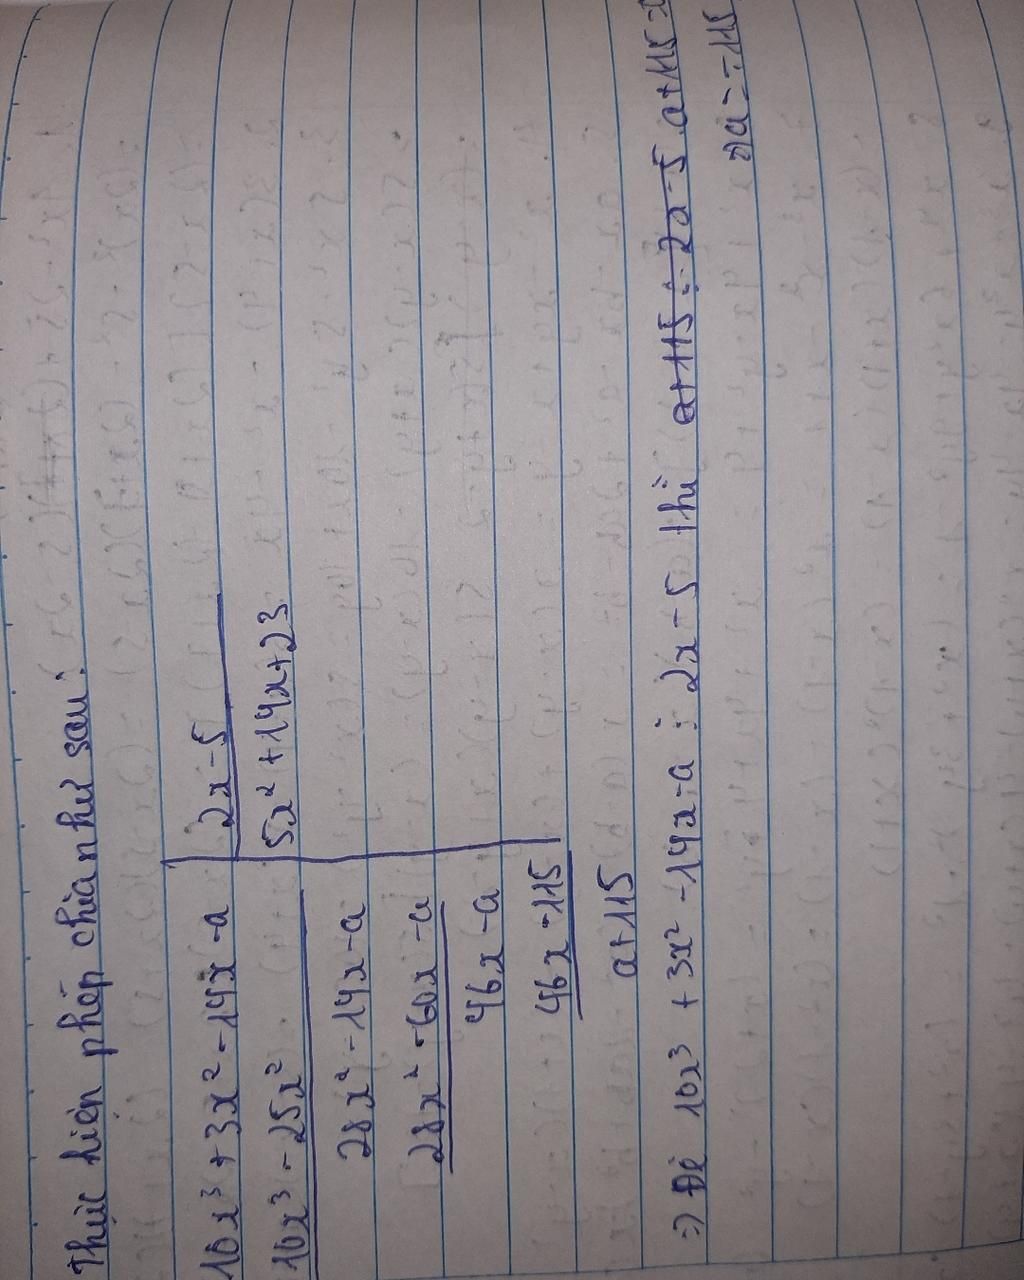 Thực hiện phép chia như sau:
10x³ + 3x² - 14x - a | 2x - 5
10x³ - 25x² | 5x² + 14x + 23
28x² - 14x - a
28x² - 60x - a
46x - a
46x - 115
a + 115
=) Để 10x³ + 3x² - 14x - a ⋮ 2x - 5 thì a + 115 ⋮ 2x - 5 a + 115 =
=) a = - 115